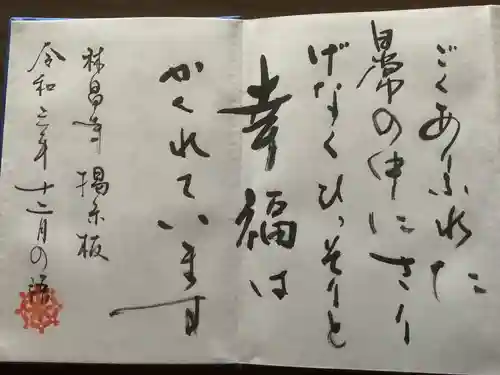 ごくあふれた
日常の中にさり
げなくひっそりと
幸福は
かくれています
林昌寺 掲示板
令和三年十二月の語